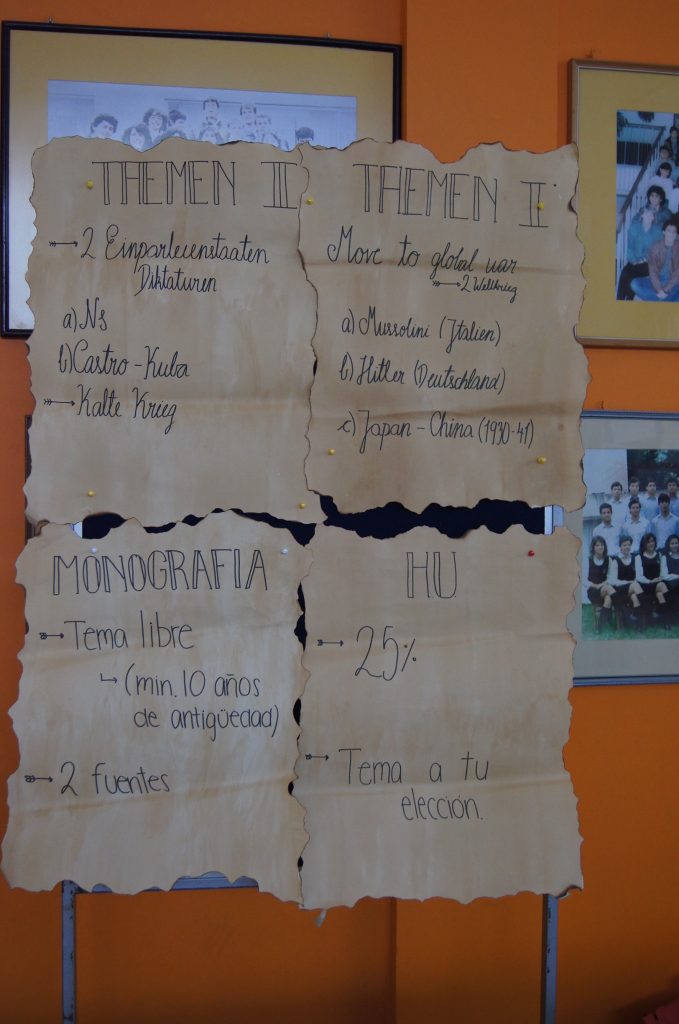 THEMEN II
2 Einparteienstaaten
Diktaturen
a) Ns
b) Castro - Kuba
Kalte Krieg
THEMEN I
Move to global war
2 Weltkrieg
a) Mussolini (Italien)
b) Hitler (Deutschland)
c) Japan - China (1930-41)
MONOGRAFIA
Tema libre
(min. 10 años
de antigüedad)
2 fuentes
HU
25%
Tema a tu
elección.